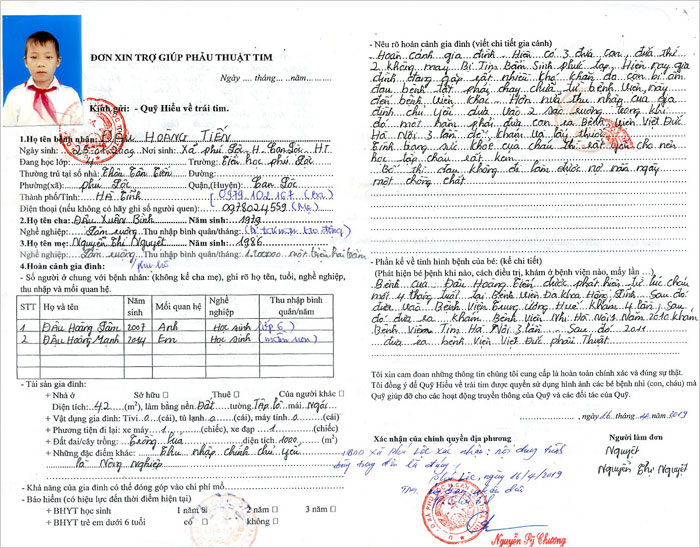 ĐƠN XIN TRỢ GIÚP PHẪU THUẬT TIM
Ngày ..... tháng ..... năm..........
Kính gửi: - Quỹ Hiểu về trái tim.
1.Họ tên bệnh nhân: ĐẬU HOÀNG TIẾN
Ngày sinh: 25-01-2009 Nơi sinh: Xã phú Lộc H. Can Lộc HT
Đang học lớp: 4 Trường: Tiểu học phú Lộc
Thường trú tại số nhà: Thôn Tân Tiến Đường:
Phường(xã): phú Lộc Quận,(Huyện): Can Lộc
Thành phố/Tỉnh: HÀ Tĩnh (0979.102.167 (Ba)
Điện thoại (nếu không có hãy ghi số người quen): 0978024559 (Mẹ)
2.Họ tên cha: Đậu Xuân Bình Năm sinh: 1979
Nghề nghiệp: Làm ruộng Thu nhập bình quân/tháng:
3.Họ tên mẹ: Nguyễn Thị Nguyệt Năm sinh: 1986
Nghề nghiệp: Làm ruộng Thu nhập bình quân/tháng: 1.200000 một triệu hai trăm
4.Hoàn cảnh gia đình:
- Số người ở chung với bệnh nhân: (không kể cha mẹ), ghi rõ họ tên, tuổi, nghề nghiệp, thu nhập và mối quan hệ.
STT Họ và tên Năm sinh Mối quan hệ Nghề nghiệp Thu nhập bình quân/năm
1 Đậu Hoàng Tâm 2007 Anh Học sinh (lớp 6)
2 Đậu Hoàng Mạnh 2014 Em Học sinh (mầm non)
- Tài sản gia đình:
+ Nhà ở Sở hữu Thuê Của người khác
Diện tích: 42 (m²), làm bằng nền Đất tường Táp lô mái Ngói
+ Vật dụng gia đình: Tivi.0 (cái), tủ lạnh 0 (cái), máy tính 0 (cái)
+ Phương tiện đi lại: xe máy 1 (chiếc), xe đạp 1 (chiếc)
+ Đất đai/cây trồng: Trồng lúa diện tích 1000 (m²)
+ Những đặc điểm khác: Thu nhập chính chủ yếu
là Nông nghiệp
- Khả năng của gia đình có thể đóng góp vào chi phí mổ
- Bảo hiểm (có hiệu lực đến thời điểm hiện tại)
+ BHYT học sinh 1 năm 2 năm 3 năm
+ BHYT trẻ em dưới 6 tuổi có không
- Nêu rõ hoàn cảnh gia đình (viết chi tiết gia cảnh)
Hoàn cảnh gia đình Hiện có 3 đứa con, đứa thứ
2 không may Bị Tim Bẩm Sinh phức tạp, Hiện nay gia
đình đang gặp rất nhiều khó khăn do con bị ốm
đau bệnh tật phải chạy chữa từ bệnh viện này
đến bệnh viện khác. Hơn nữa thu nhập của gia
đình chủ yếu dựa vào 2 sào ruộng trong khi
đó mỗi năm phải đưa ra Bệnh Viện Việt Đức
Hà Nội 3 lần để khám và lấy thuốc
Tình trạng sức khỏe của cháu thì rất yếu cho nên
học tập cháu rất kém
Bố thì đau không đi làm được nợ nần ngày
một chồng chất
- Phần kể về tình hình bệnh của bé: (kể chi tiết)
(Phát hiện bé bệnh khi nào, cách điều trị, khám ở bệnh viện nào, mấy lần ...)
Bệnh của Đậu Hoàng Tiến được phát hiện từ lúc cháu
mới 4 tháng tuổi tại Bệnh Viện Đa khoa Hồng Lĩnh. Sau đó
đưa vào Bệnh Viện Trung Ương Huế khám 4 lần, Sau
đó đưa ra khám Bệnh Viện Nhi Hà Nội 1 Năm 2010 khám
Bệnh Viện Tim Hà Nội 3 lần Sau đó 2011
đưa ra bệnh Viện Việt Đức phẫu Thuật
Tôi xin cam đoan những thông tin chúng tôi cung cấp là hoàn toàn chính xác và đúng sự thật.
Tôi đồng ý để Quỹ Hiểu về trái tim được quyền sử dụng hình ảnh các bé bệnh nhi (con, cháu) mà
Quỹ giúp đỡ cho các hoạt động truyền thông của Quỹ và các đối tác của Quỹ.
, ngày 16 tháng 4 năm 2019
Xác nhận của chính quyền địa phương Người làm đơn
UBND Xã Phú Lộc xác nhận: nội dung trình Nguyệt
bày trong đơn là đúng Nguyễn Thị Nguyệt
Phú Lộc, 16/4/2019
Nguyễn Sỹ Chương